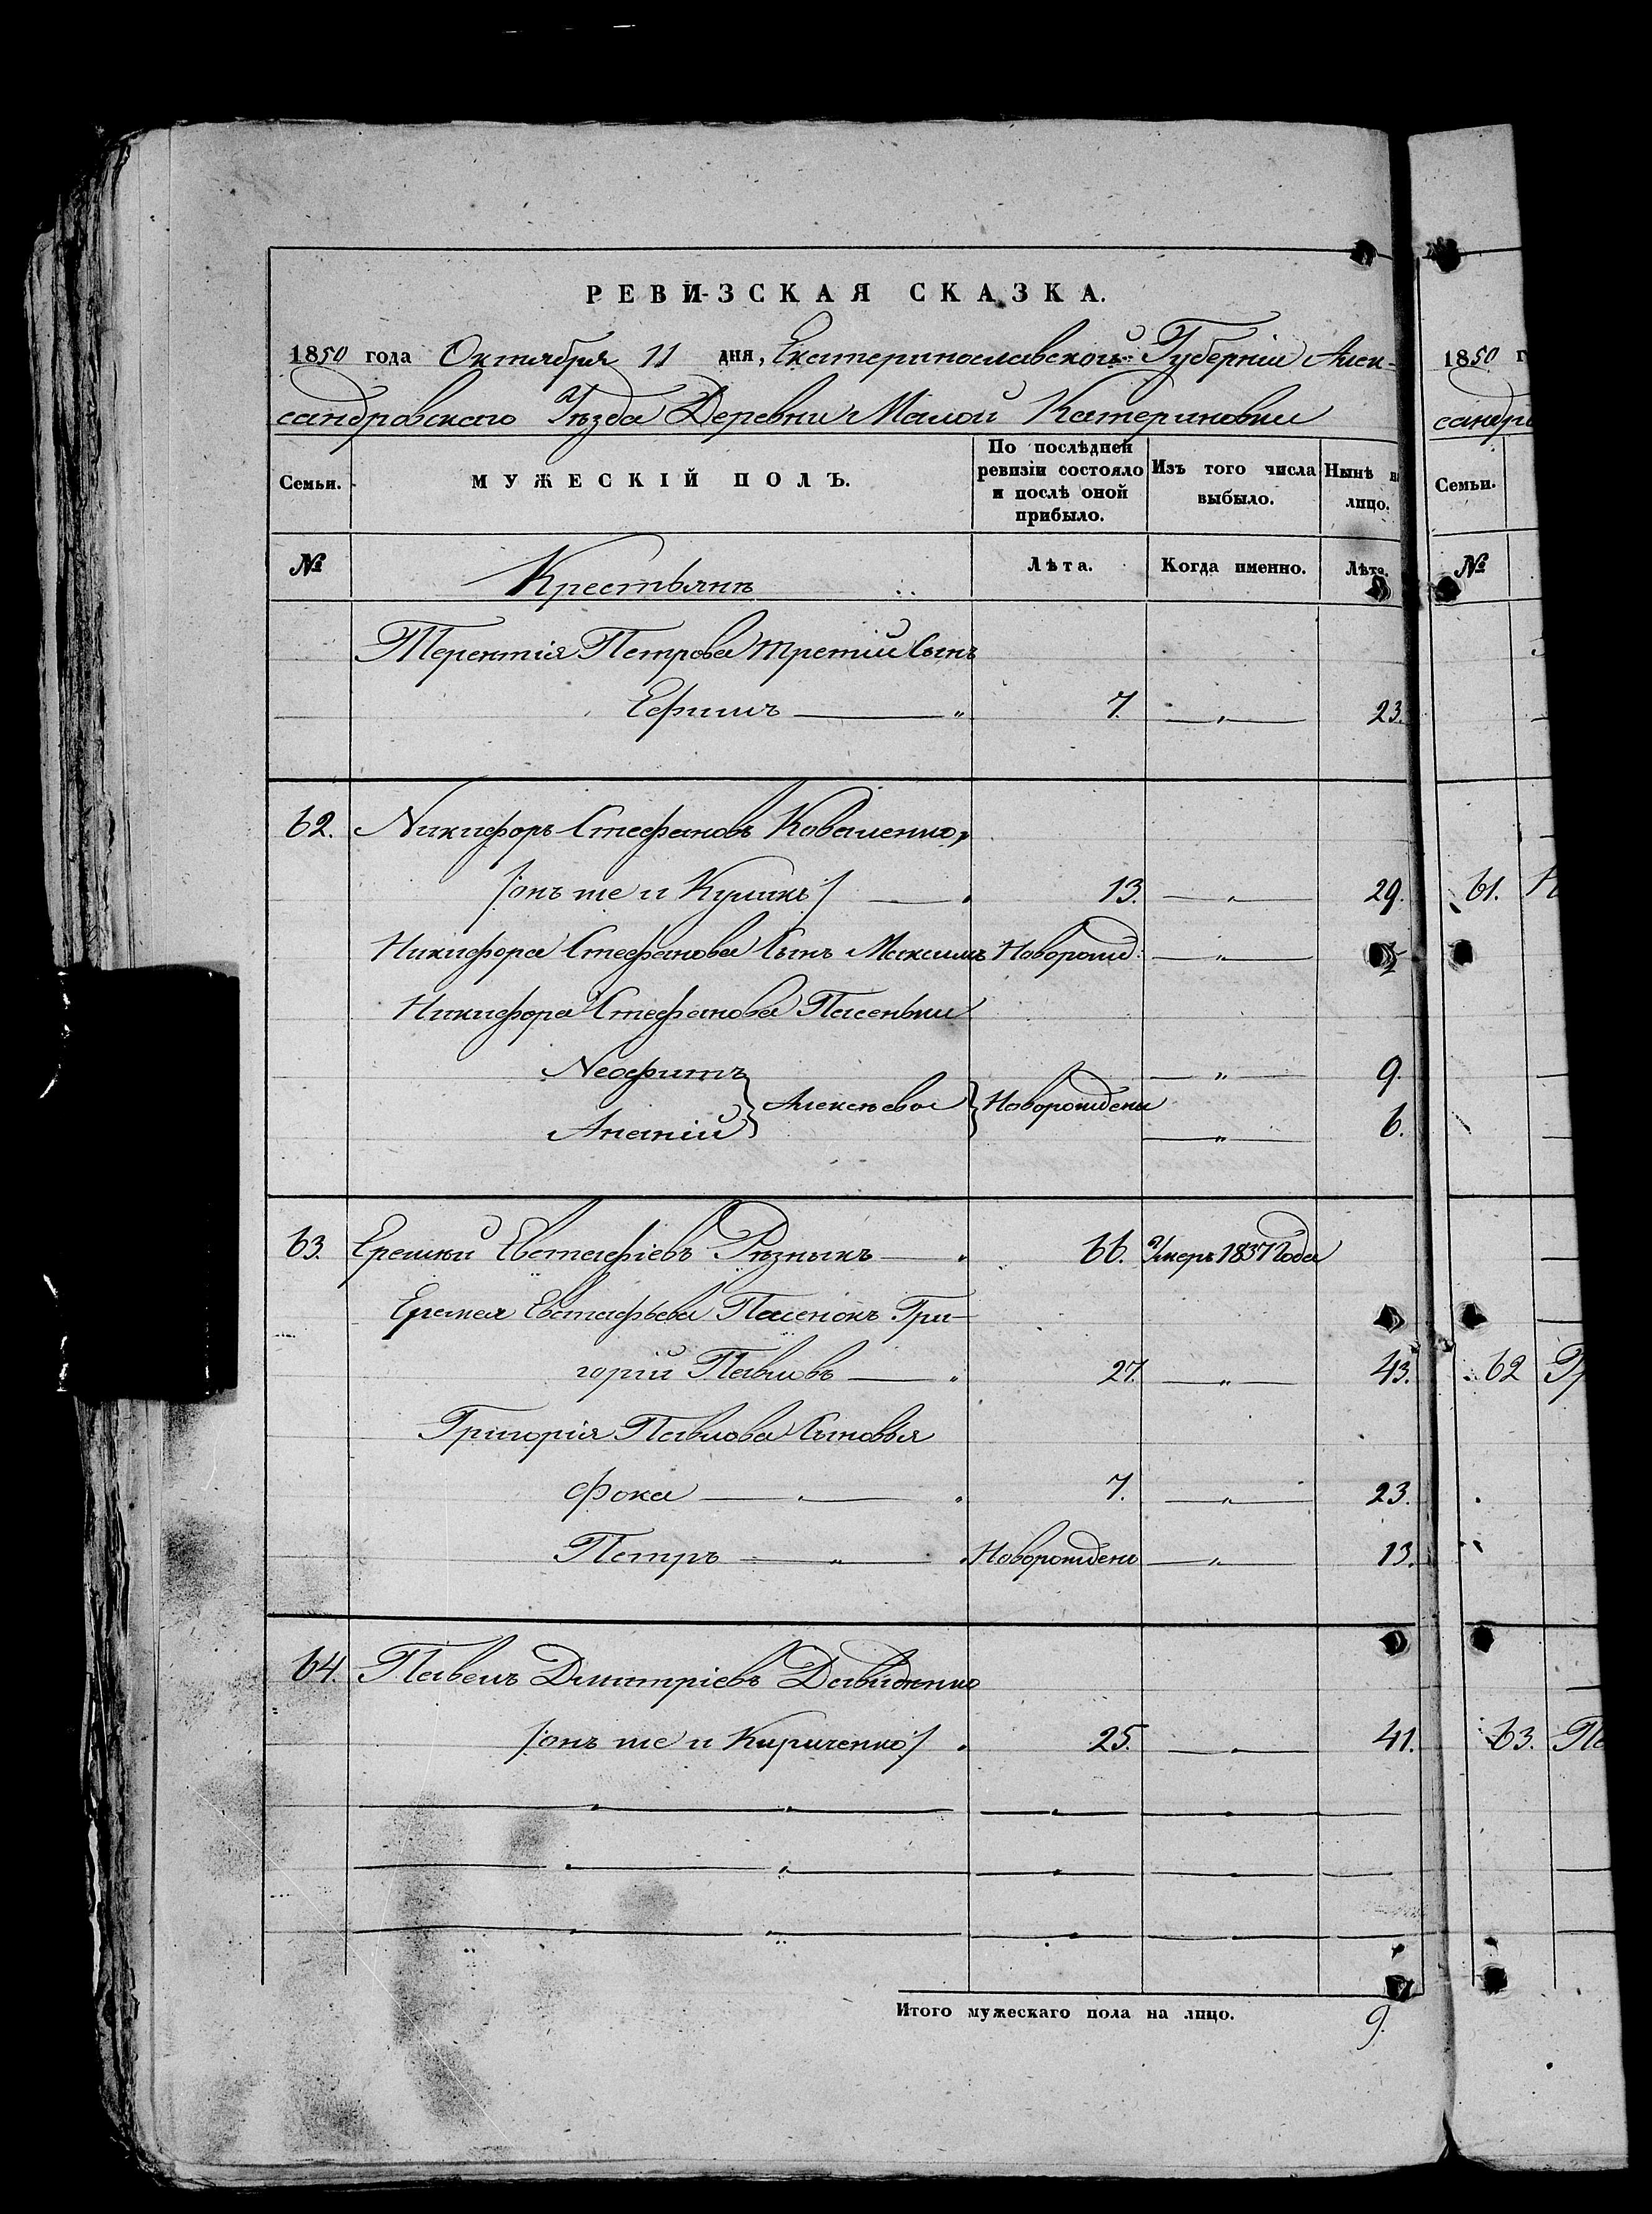 РЕВИЗСКАЯ СКАЗКА.
1850 года Октября 11 дня, Екатеринославской Губерніи Алек-
сандровскаго Уѣзда Деревни Малой Катериновки
Семьи. МУЖЕСКІЙ ПОЛЪ. По послѣдней ревизіи состояло и послѣ оной прибыло. Изъ того числа выбыло. Нынѣ на лицо.
№ Крестьянъ Лѣта. Когда именно. Лѣта.
Терентія Петрова третій Сынъ
Ефимъ — " 7. — " — 23.
62. Никифоръ Стефановъ Коваленко,
/онъ же и Куликъ/ — 13. — " — 29.
Никифора Стефанова Сынъ Максимъ Новорожд: — " —
Никифора Стефанова Пасенки
Неофитъ — " — 9.
} Алексѣева } Новорождены
Ананій — " — 6.
63. Еремѣй Евстафіевъ Рѣзныкъ — 66. Умеръ 1837 Года
Еремея Евстафьева Пасенокъ Гри-
горій Павловъ — " 27. — " — 43.
Григорія Павлова Сыновья
Фока — " — 7. — " — 23.
Петръ — " — Новорожденъ — " — 13.
64. Павелъ Дмитріевъ Давиденко
/:онъ же и Кириченко:/ 25. — " — 41.
Итого мужескаго пола на лицо. 9.
1850 г
сандро
Семьи.
№
61. Н
62 Гр
63. Па